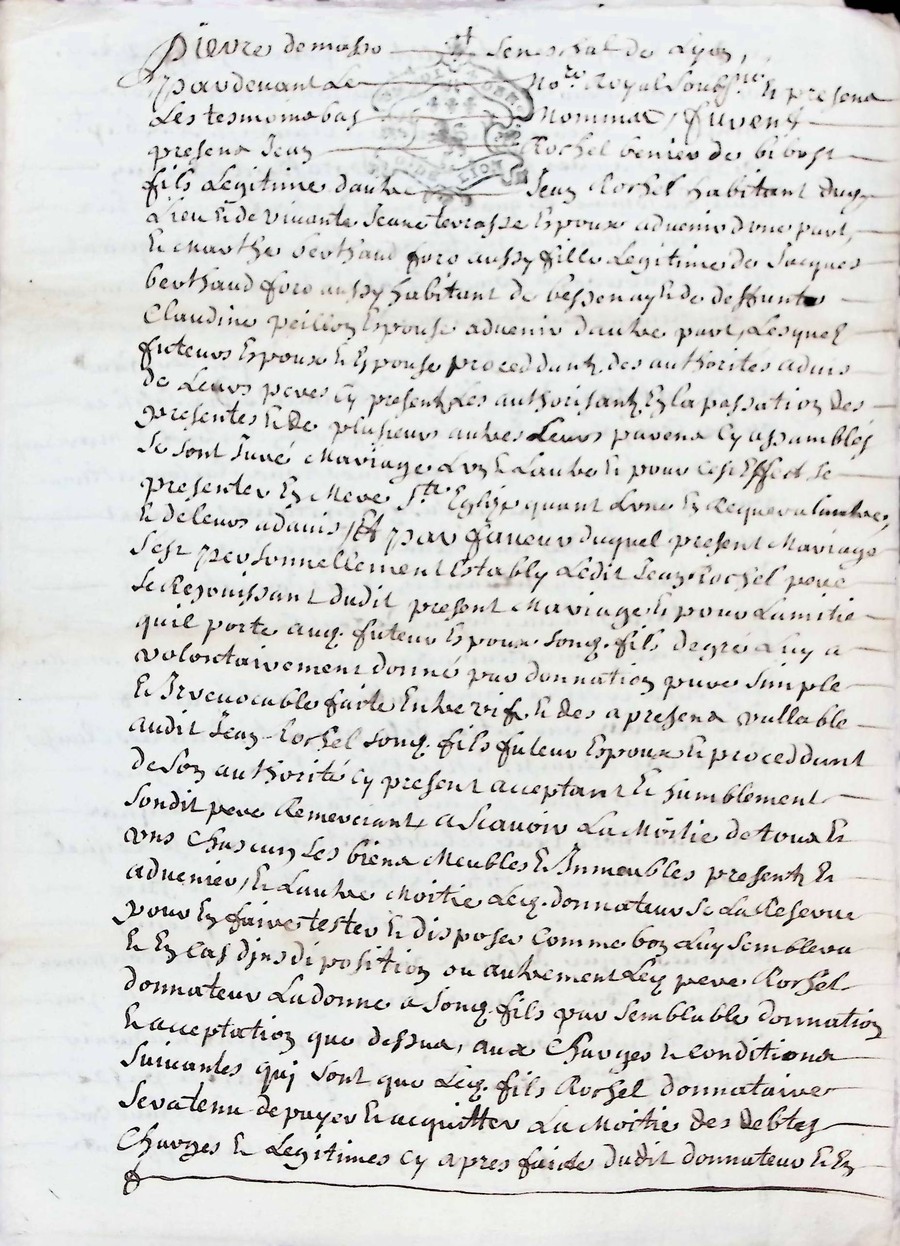 Pierre demasso st Seneschal de Lyon,
pardevant Le No.re Royal Soubsne. Et presens
Les tesmoins bas Nommés, furent
presens Jean Rochel benier de bibost
fils Legitime d'autre Jean Rochel habitant dudt
Lieu Et de vivante Jeane terrasse Espoux advenir d'une part,
Et Marthe berthaud foro aussy fille Legitime de Jacques
berthaud foro aussy habitant de bessenay Et de deffunte
Claudine peillon Espouse advenir d'autre part, Lesquels
futeurs Espoux Et Espouse proceddants des authorités advis
de Leurs peres cy presents Les authorisants En la passation des
presentes Et de plusieurs autres Leurs parens Cy assamblés
Se sont Juré Mariage L'un Et L'autre Et pour cest Effect Se
presenter En Mere Ste Eglise quant L'une En Requera L'autre,
Et de leurs advis / Et par faveur duquel present Mariage
S'est personnellement Estably Ledit Jean Rochel pere
Se Rejouissant dudit present Mariage Et pour L'amitie
qu'il porte auq. futeur Espoux Sonq. fils de gré Luy a
volontairement donné par donnation pure Simple
Et Irrevocable faite Entre vifs Et des a presens vallable
audit Jean Rochel Sonq. fils futeur Espoux Et proceddant
de Son authorité cy present acceptant Et humblement
Sondit pere Remerciant a Scavoir La Moitie de tous Et
uns Chascuns Les biens Meubles Et Immeubles presents Et
advenier, Et L'autre Moitie Leq. donnateur Se La Reserve
pour En faire tester Et disposer Comme bon Luy Semblera
Et En Cas d'insdiposition ou autrement Leq pere Rochel
donnateur La donne a Sonq. fils par Semblable donnation
Et acceptation que dessus, aux Charges Et Conditions
Suivantes qui sont que Leq. fils Rochel donnataire
Sera tenu de payer Et acquitter La Moitie des debtes
Charges Et Legitimes cy apres faicte dudit donnateur Et En